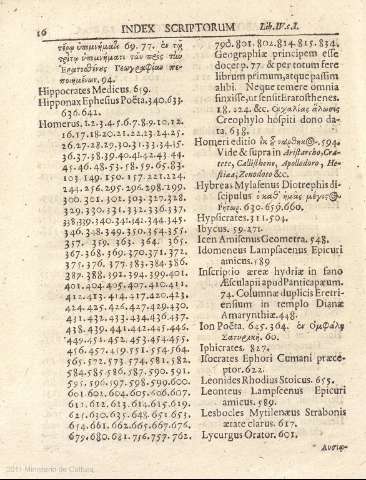 16 INDEX SCRIPTORUM Lib.IV.c.I.
69. 77. ἐκ τῇ
94.
Hippocrates Medicus. 619.
Hipponax Ephesius Poëta. 340. 633.
636. 641.
Homerus. 2. 3. 4. 5. 6. 7. 8. 9. 10. 12.
16. 17. 18. 20. 21. 22. 23. 24. 25.
26. 27. 28. 29. 30. 31. 33. 34. 35.
36. 37. 38. 39. 40. 41. 42. 43. 44.
45. 46. 48. 53. 58. 59. 65. 83.
103. 149. 150. 157. 221. 224.
244. 256. 295. 296. 298. 299.
300. 301. 302. 303. 327. 328.
329. 330. 331. 332. 336. 337.
338. 339. 340. 341. 344. 345.
346. 348. 349. 350. 354. 355.
357. 359. 363. 364. 365.
367. 368. 369. 370. 371. 372.
375. 376. 377. 383. 384. 386.
387. 388. 392. 394. 399. 401.
401. 404. 405. 407. 410. 411.
412. 413. 414. 417. 420. 423.
424. 425. 426. 427. 429. 430.
431. 432. 433. 434. 436. 437.
438. 439. 441. 442. 445. 446.
449. 451. 452. 453. 454. 455.
456. 457. 449. 551. 554. 564.
565. 572. 573. 574. 581. 582.
584. 585. 586. 587. 590. 591.
595. 596. 597. 598. 599. 600.
601. 602. 604. 605. 606. 607.
611. 612. 613. 614. 615. 619.
625. 630. 635. 648. 651. 653.
654. 661. 662. 665. 667. 676.
679. 680. 681. 756. 757. 762.
790. 801. 802. 814. 815. 834.
Geographiæ principem esse
docet pp. 77. & per totum fere
librum primum, atque passim
alibi. Neque temere omnia
finxisse, ut sensit Eratosthenes.
18. 224. &c.
Creophylo hospiti dono da-
ta. 638.
Homeri editio 594.
Vide & supra in Aristarcho, Cra-
tete, Callisthene, Apollodoro, He-
stiæa, Zenodoto &c.
Hybreas Mylasenus Diotrephis di-
scipulus
630. 659. 660.
Hypsicrates. 311. 504.
Ibycus. 59. 271.
Icen Amisenus Geometra. 548.
Idomeneus Lampsacenus Epicuri
amicus. 589
Inscriptio æreæ hydriæ in fano
Æsculapii apud Panticapæum.
74. Columnæ duplicis Eretri-
ensium in templo Dianæ
Amarynthiæ. 448.
Ion Poëta. 645. 364. ἐν Ὀμφάλῃ
Σατυρικῇ. 60.
Iphicrates. 827.
Isocrates Ephori Cumani præce-
ptor. 622.
Leonides Rhodius Stoicus. 655.
Leonteus Lampsacenus Epicuri
amicus. 589.
Lesbocles Mytilenæus Strabonis
ætate clarus. 617.
Lycurgus Orator. 601.
2011 Ministerio de Cultura